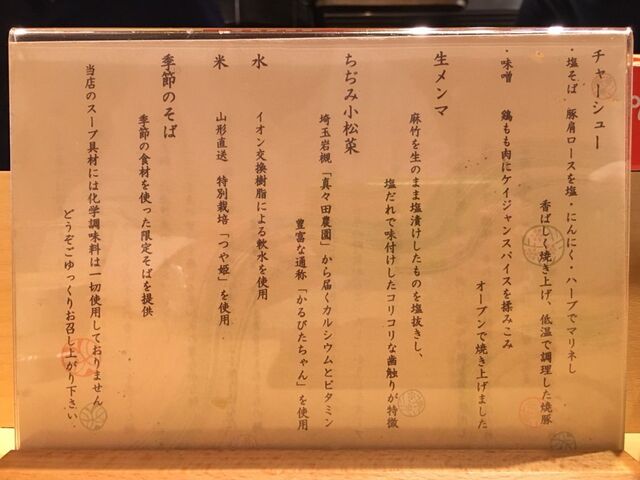 チャーシュー
・塩そば　豚肩ロースを塩・にんにく・ハーブでマリネし
香ばしく焼き上げ、低温で調理した焼豚
・味噌　鶏もも肉にケイジャンスパイスを揉みこみ
オーブンで焼き上げました
生メンマ
麻竹を生のまま塩漬けしたものを塩抜きし、
塩だれで味付けしたコリコリな歯触りが特徴
ちぢみ小松菜
埼玉岩槻「真々田農園」から届くカルシウムとビタミン
豊富な通称「かるびたちゃん」を使用
水　イオン交換樹脂による軟水を使用
米　山形直送　特別栽培「つや姫」を使用
季節のそば
季節の食材を使った限定そばを提供
当店のスープ具材には化学調味料は一切使用しておりません
どうぞごゆっくりお召し上がり下さい.